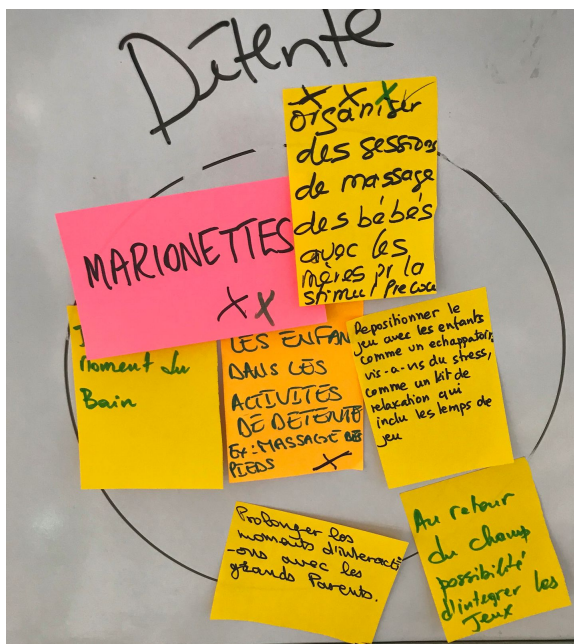 Détente
X X X
organiser
des sessions
de massage
des bébés
avec les
mères pr la
stimul Préco
MARIONETTES
X X
moment du
Bain
LES ENFAN
DANS LES
ACTIVITÉS
DE DETENTE
Ex: MASSAGE DES
PIEDS X
Repositionner le
jeu avec les enfants
comme un echappatoire
vis-a-vis du stress,
comme un kit de
relaxation qui
inclu les temps de
jeu
Prolonger les
moments d'interacti
-ons avec les
grands Parents.
Au retour
du champ
possibilité
d'integrer les
Jeux